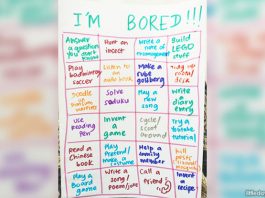 I'M BORED!!!
ANSWER
a question
you don't
know
Hunt an
insect
Write a
note of
encouragement
Build
LEGO
stuff
Play
badminton/
soccer
Listen to
an
audio book
Make a
rube
goldberg
Tidy up
desk
Doodle
Solve
sudoku
Play a
new
song
Write
diary
entry
USE
READING
PEN
Invent
a
game
Cycle/
Scoot
around
Try a
youtube
tutorial
Read a
Chinese
book
Play
Pretend/
make a
costume
Help a
family
member
Kill
Play a
Board
game
Write a
Song/
poem/joke
Call a
friend
Invent
a
recipe